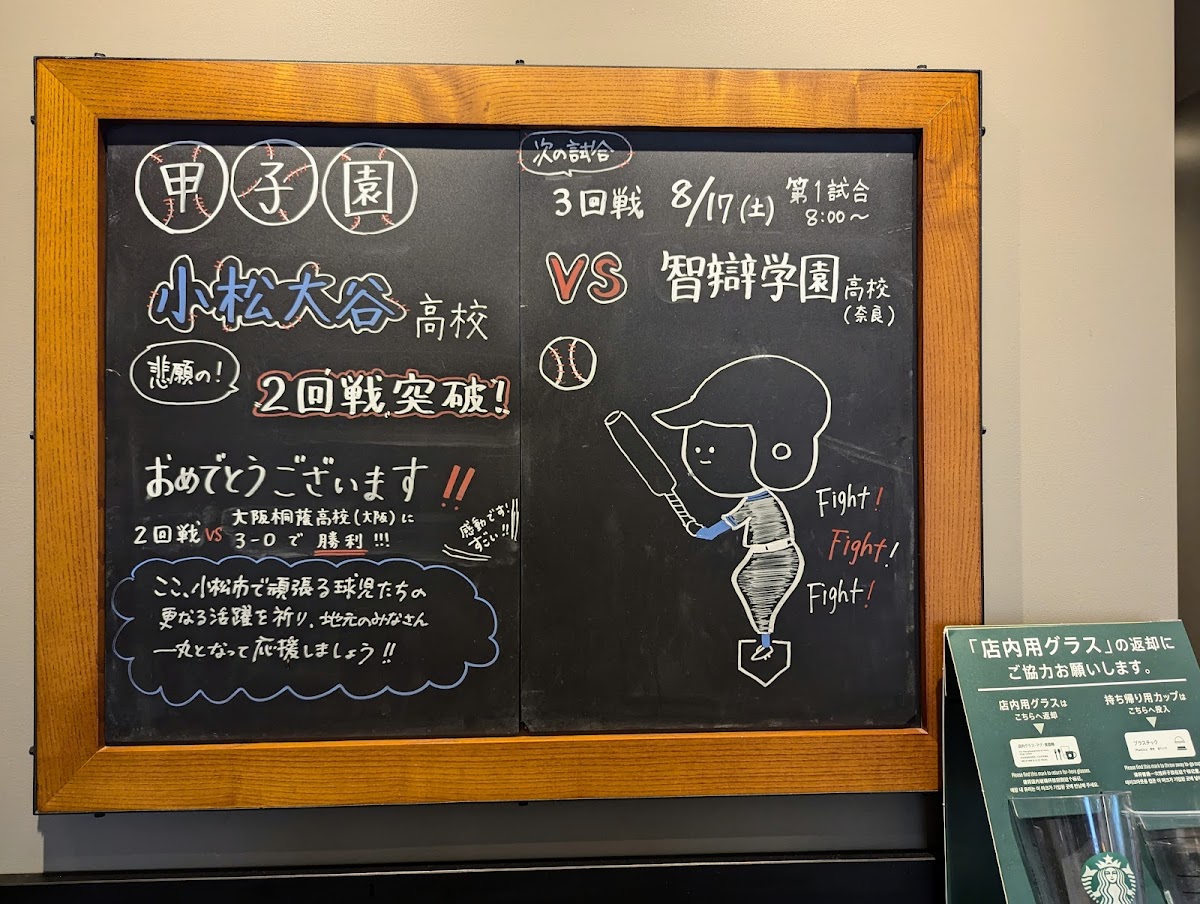 甲子園
小松大谷高校
悲願の!
2回戦突破!
おめでとうございます!!
2回戦 VS 大阪桐蔭高校(大阪)に
3-0で 勝利!!!
感動です!
すごい!!
ここ、小松市で頑張る球児たちの
更なる活躍を祈り、地元のみなさん
一丸となって応援しましょう!!
次の試合
3回戦 8/17(土) 第1試合
8:00〜
VS 智辯学園高校
(奈良)
Fight!
Fight!
Fight!
「店内用グラス」の返却に
ご協力お願いします。
店内用グラスは
こちらへ返却
持ち帰り用カップは
こちらへ投入
プラスチック
Please find this mark to return for-here glasses.